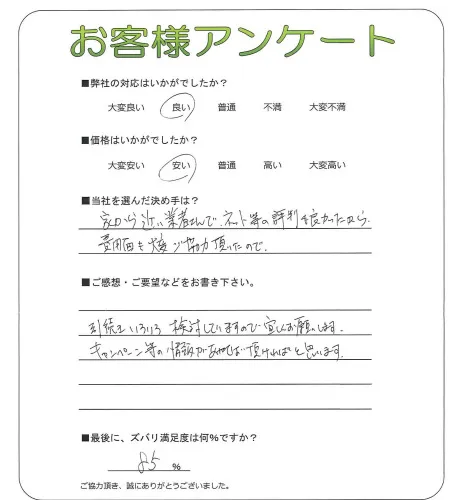 お客様アンケート
■弊社の対応はいかがでしたか？
大変良い 良い 普通 不満 大変不満
■価格はいかがでしたか？
大変安い 安い 普通 高い 大変高い
■当社を選んだ決め手は？
家から近い業者さんで、ネット等の評判も良かったから。
費用面も大変ご協力頂いたので。
■ご感想・ご要望などをお書き下さい。
引続きいろいろ検討していますので宜しくお願いします。
キャンペーン等の情報があれば頂ければと思います。
■最後に、ズバリ満足度は何%ですか？
85 %
ご協力頂き、誠にありがとうございました。